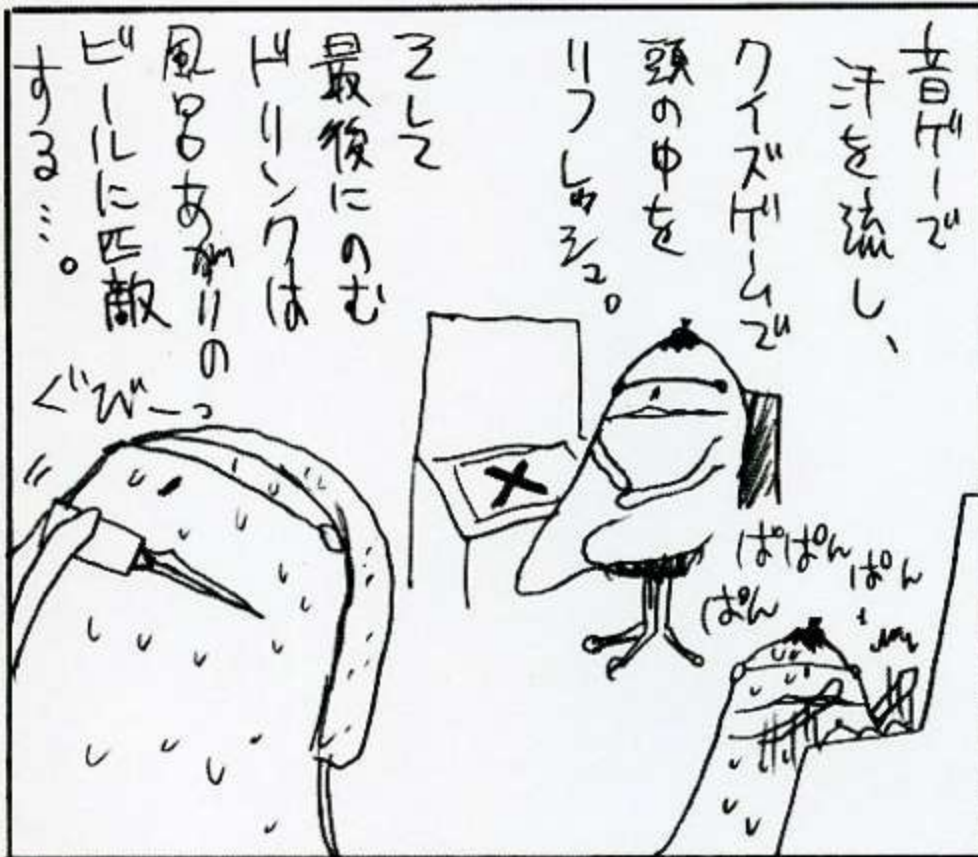 音ゲーで
汗を流し、
クイズゲームで
頭の中を
リフレッシュ。
そして
最後にのむ
ドリンクは
風呂あがりの
ビールに匹敵
する…。
ぱぱん
ぱん
ぱん
ぐびーっ